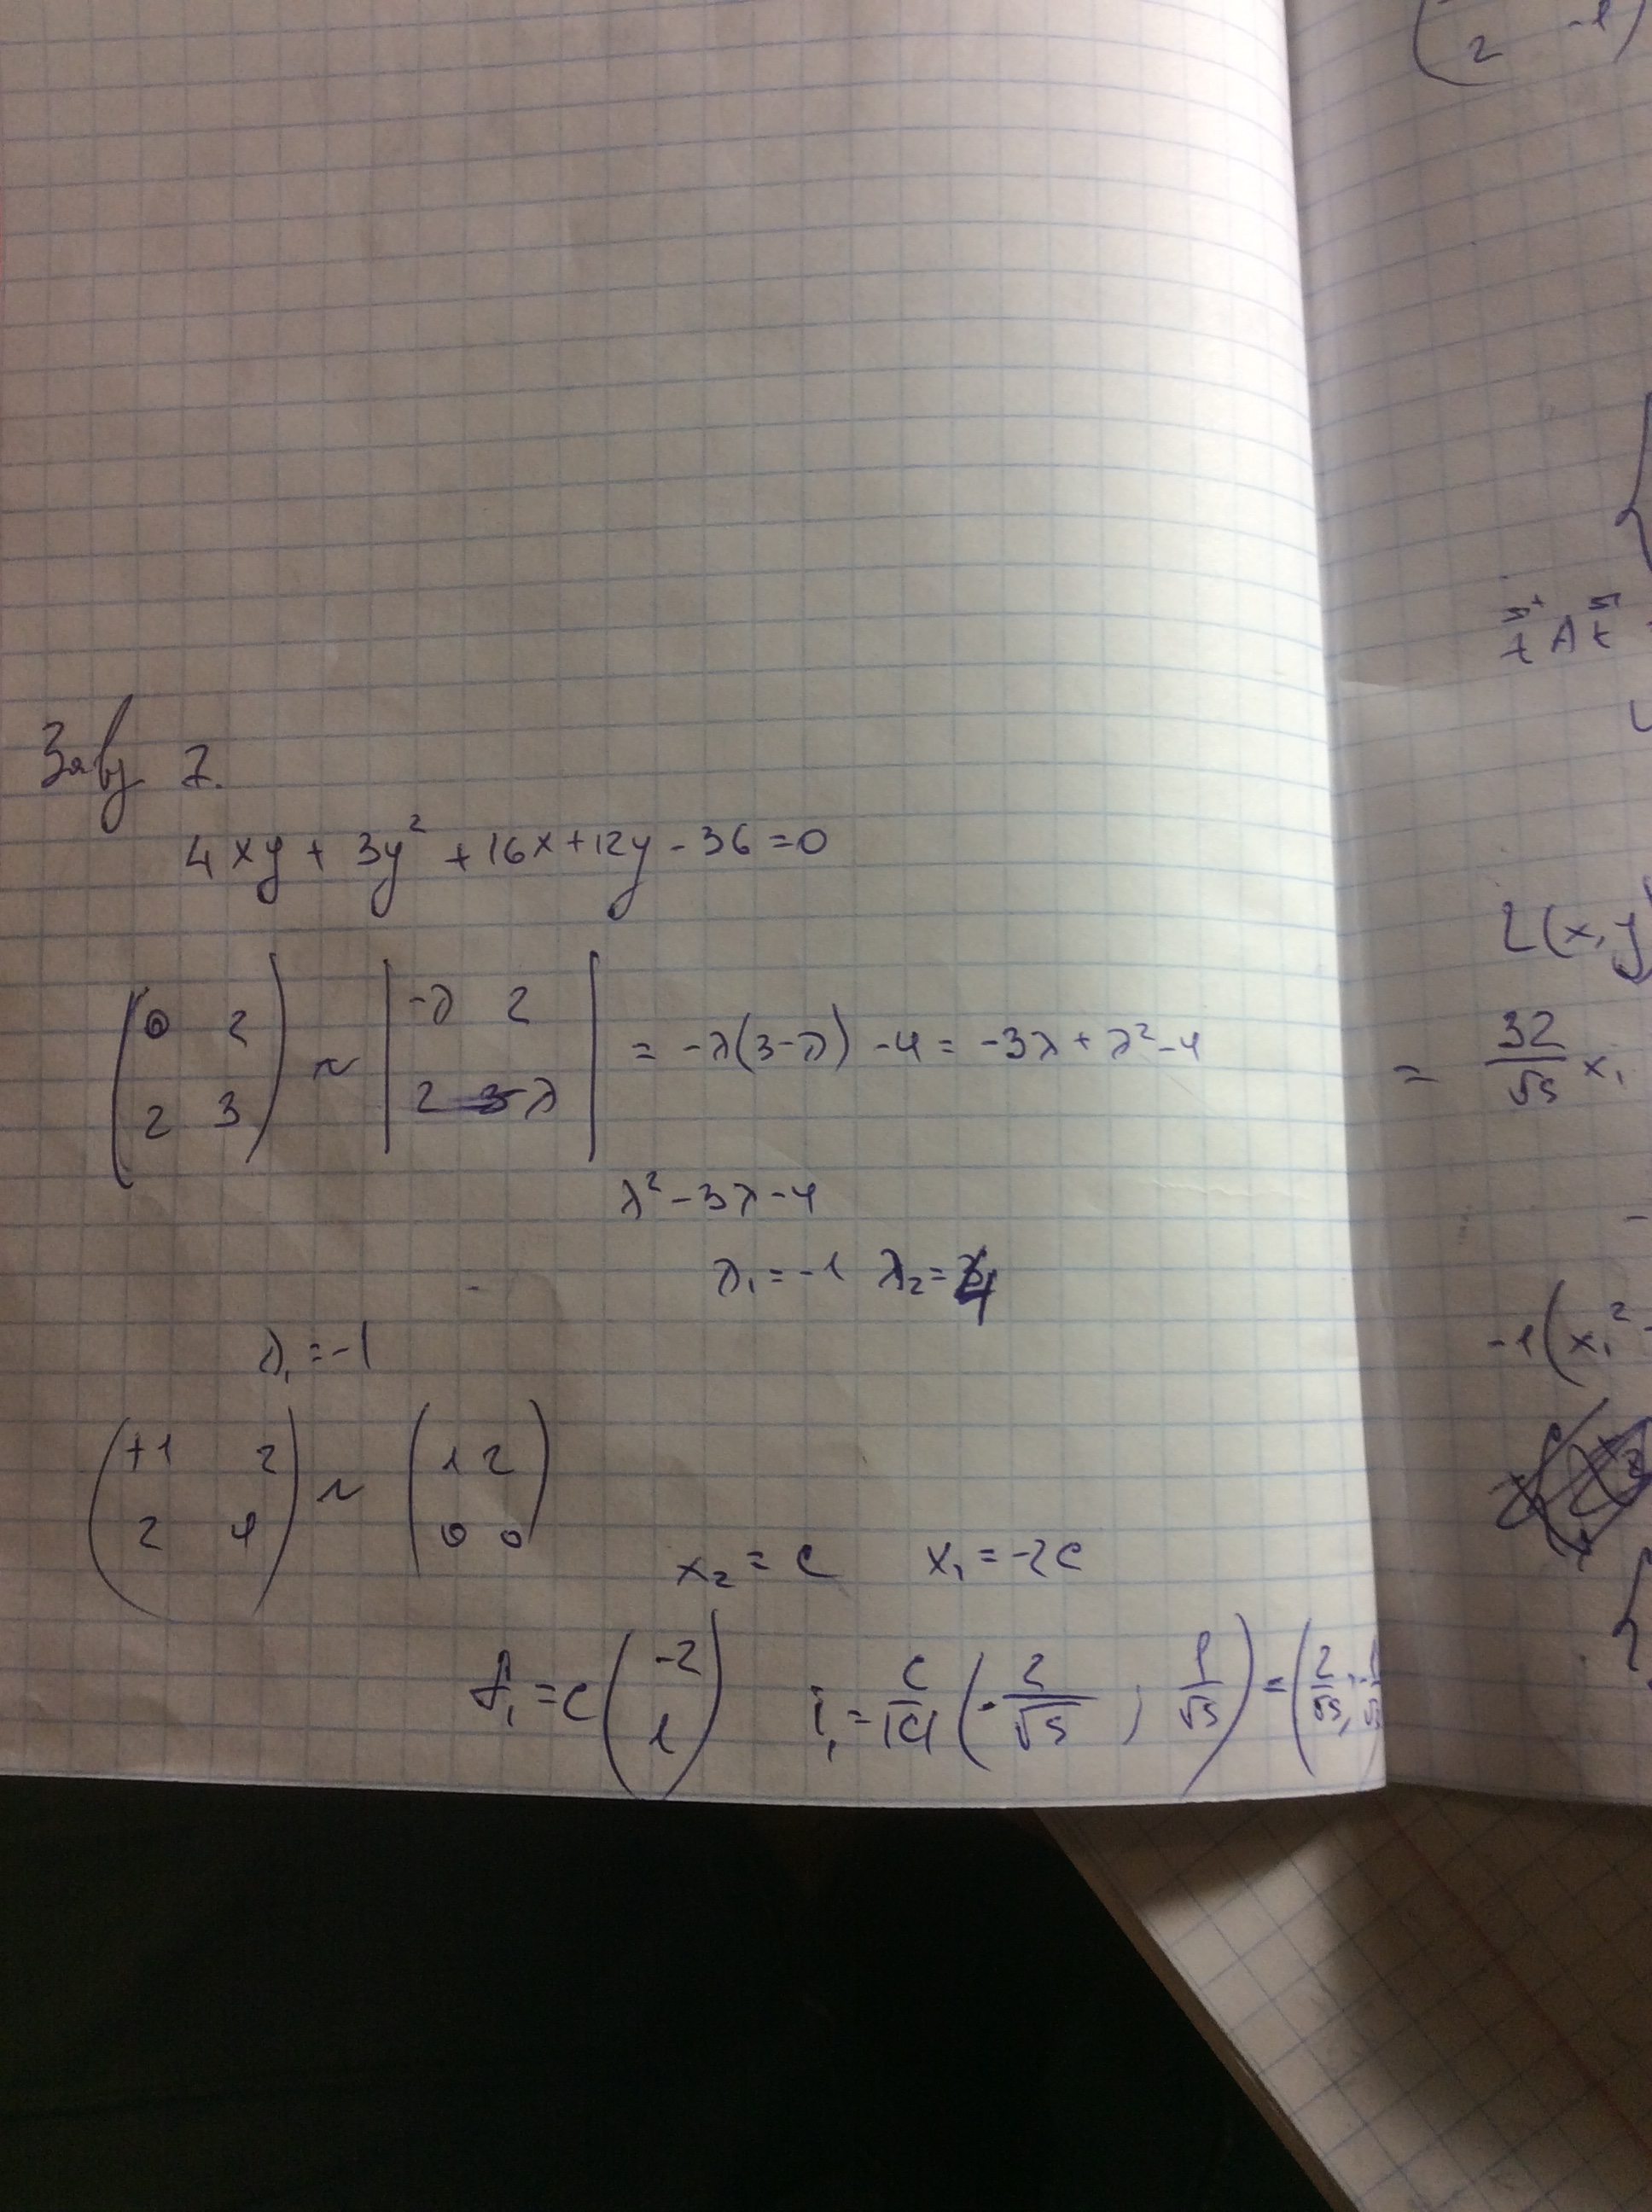 Завд 7.
4xy + 3y² + 16x + 12y - 36 = 0
(0 2; 2 3) ~ |-λ 2; 2 3-λ| = -λ(3-λ) - 4 = -3λ + λ² - 4
λ² - 3λ - 4
λ₁ = -1 λ₂ = 4
λ₁ = -1
(+1 2; 2 4) ~ (1 2; 0 0)
x₂ = c x₁ = -2c
f₁ = c(-2; 1) i₁ = c/|c| (-2/√5 ; 1/√5) = (2/√5; -1/√5)
2 -1
A
L(x, y)
= 32/√5 x₁
-1(x₁²